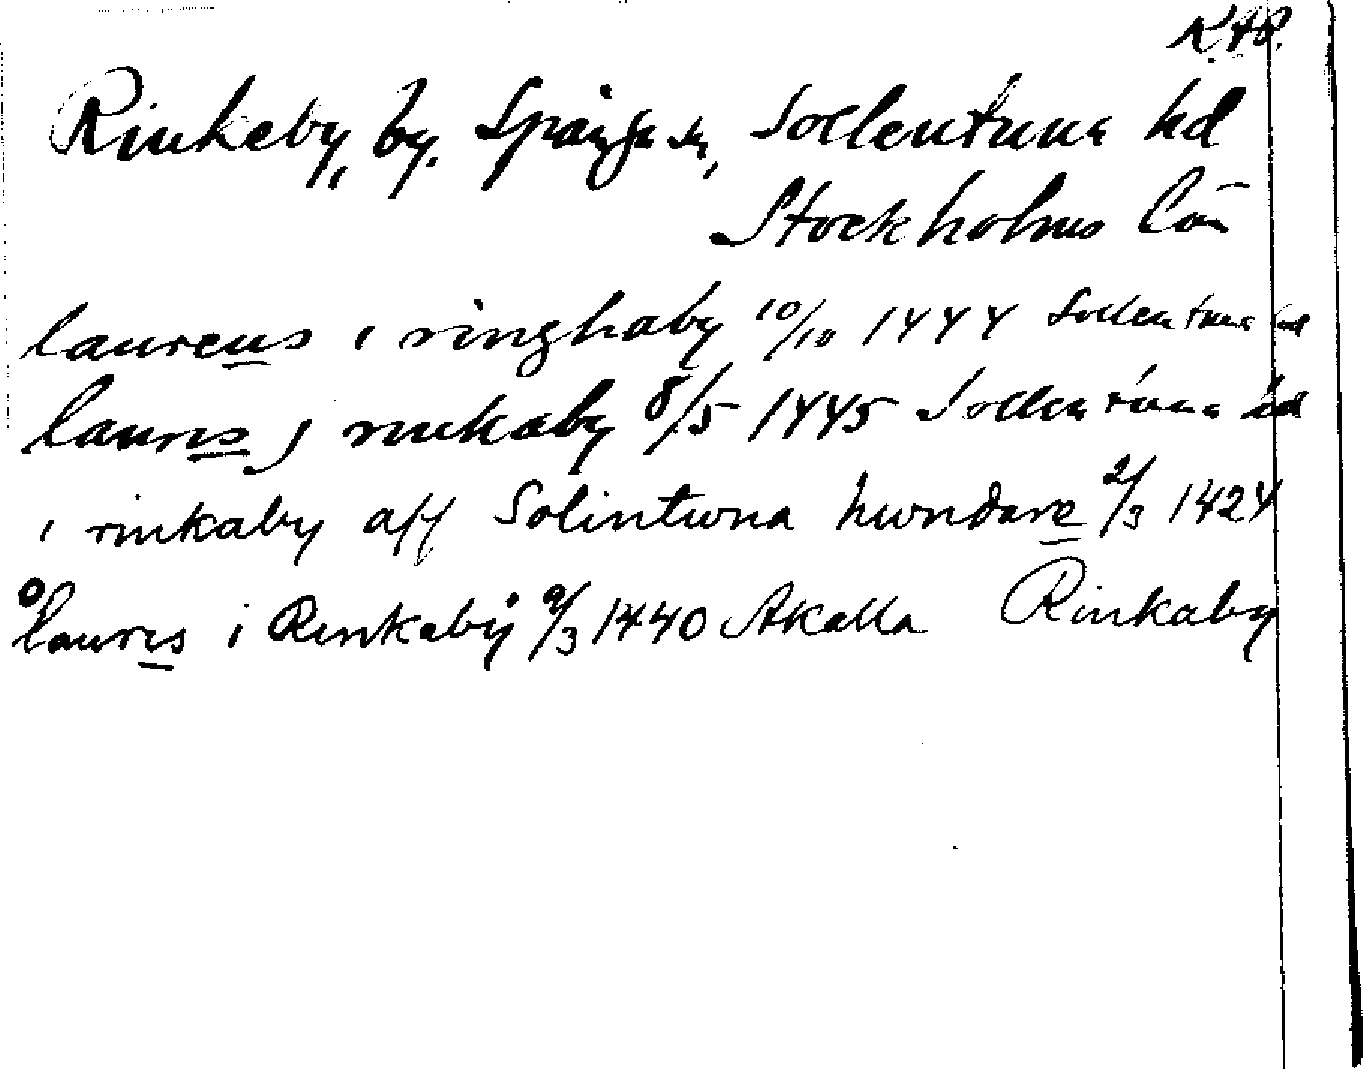 Rinkeby, by. Spånga sn, Sollentuna hd
Stockholms län
laurens i ringhaby 10/10 1444 Sollentuna hd
lauris j rinkaby 8/5 1445 Sollentuna hd
i rinkaby aff Solintwna hwndare 2/3 1424
lauris i Rinkaby 9/3 1440 Akalla Rinkaby